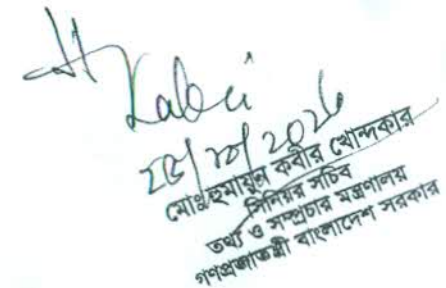 H Kabir
মোঃ হুমায়ুন কবীর খোন্দকার
সিনিয়র সচিব
তথ্য ও সম্প্রচার মন্ত্রণালয়
গণপ্রজাতন্ত্রী বাংলাদেশ সরকার